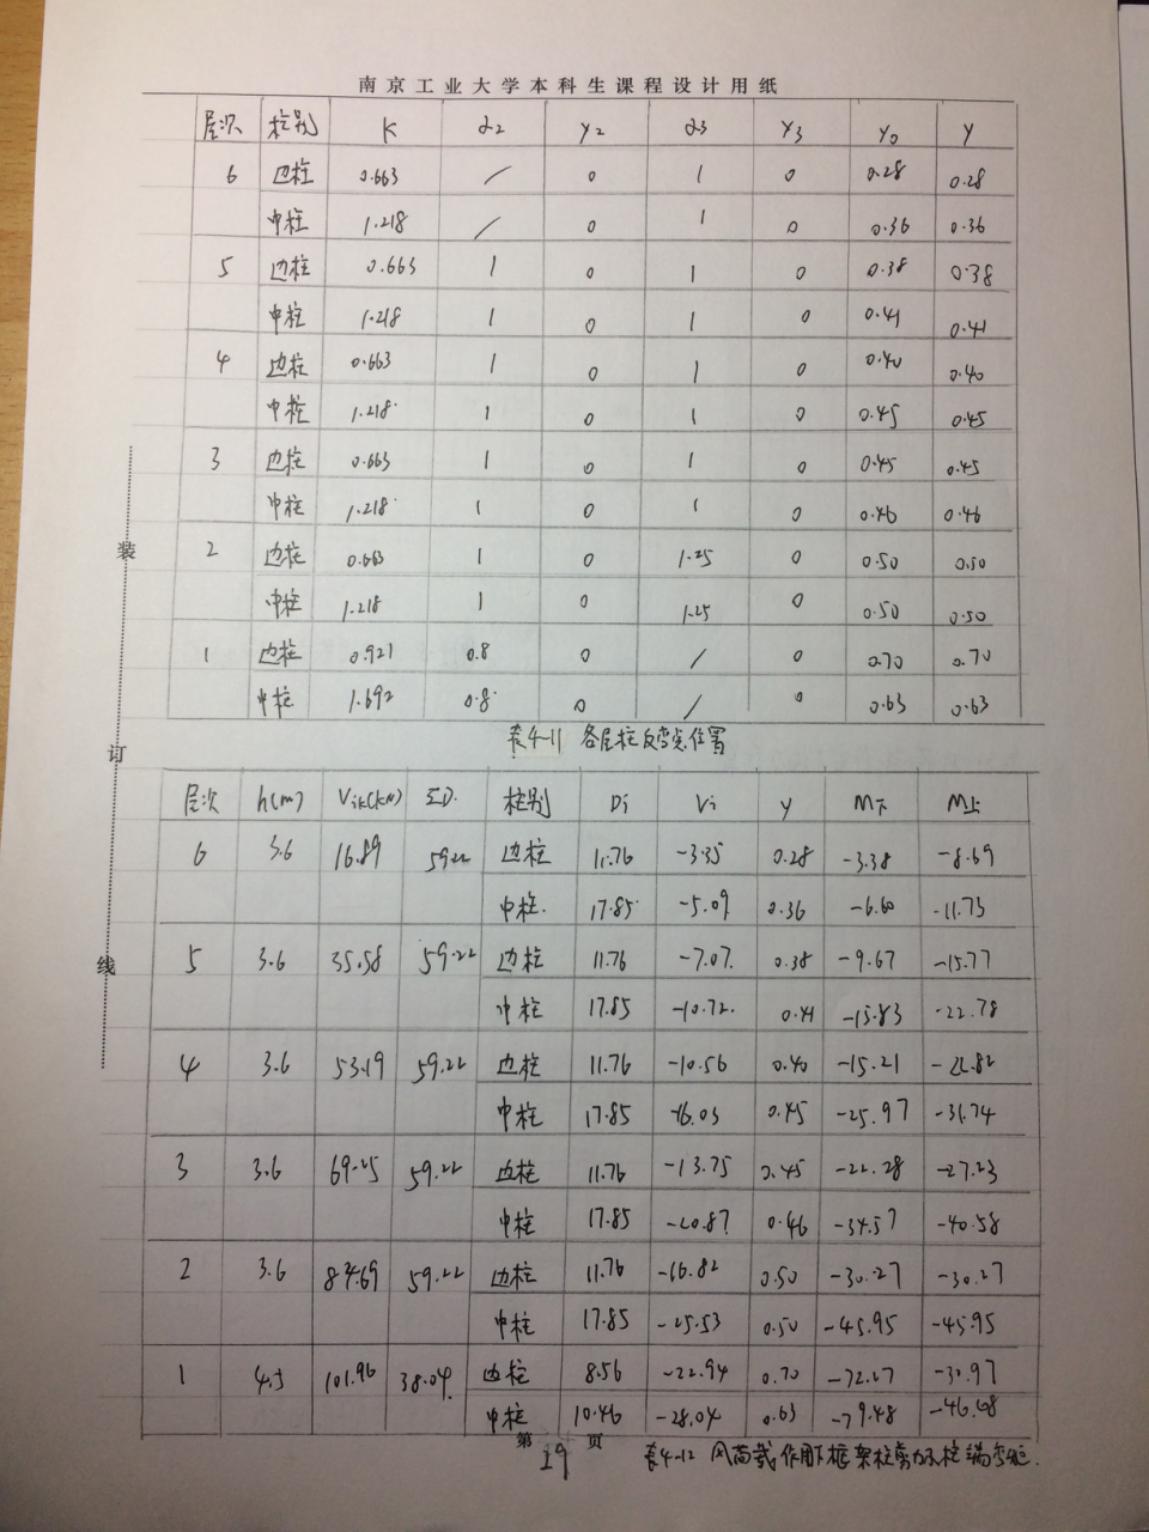 南京工业大学本科生课程设计用纸
层次 柱别 K α2 y2 α3 y3 y0 y
6 边柱 0.663 / 0 1 0 0.28 0.28
中柱 1.218 / 0 1 0 0.36 0.36
5 边柱 0.663 1 0 1 0 0.38 0.38
中柱 1.218 1 0 1 0 0.41 0.41
4 边柱 0.663 1 0 1 0 0.40 0.40
中柱 1.218 1 0 1 0 0.45 0.45
3 边柱 0.663 1 0 1 0 0.45 0.45
中柱 1.218 1 0 1 0 0.46 0.46
2 边柱 0.663 1 0 1.25 0 0.50 0.50
中柱 1.218 1 0 1.25 0 0.50 0.50
1 边柱 0.921 0.8 0 / 0 0.70 0.70
中柱 1.692 0.8 0 / 0 0.63 0.63
表4-11 各层柱反弯点位置
层次 h(m) Vik(kN) ΣD. 柱别 Di Vi y M下 M上
6 3.6 16.89 59.22 边柱 11.76 -3.35 0.28 -3.38 -8.69
中柱. 17.85 -5.09 0.36 -6.60 -11.73
5 3.6 35.58 59.22 边柱 11.76 -7.07. 0.38 -9.67 -15.77
中柱 17.85 -10.72. 0.41 -15.83 -22.78
4 3.6 53.19 59.22 边柱 11.76 -10.56 0.40 -15.21 -22.82
中柱 17.85 -16.03 0.45 -25.97 -31.74
3 3.6 69.25 59.22 边柱 11.76 -13.75 0.45 -22.28 -27.23
中柱 17.85 -20.87 0.46 -34.57 -40.58
2 3.6 84.69 59.22 边柱 11.76 -16.82 0.50 -30.27 -30.27
中柱 17.85 -25.53 0.50 -45.95 -45.95
1 4.5 101.96 38.04. 边柱 8.56 -22.94 0.70 -72.27 -30.97
中柱 10.46 -28.04 0.63 -79.48 -46.68
第 19 页
表4-12 风荷载作用下框架柱剪力及柱端弯矩.
装
订
线